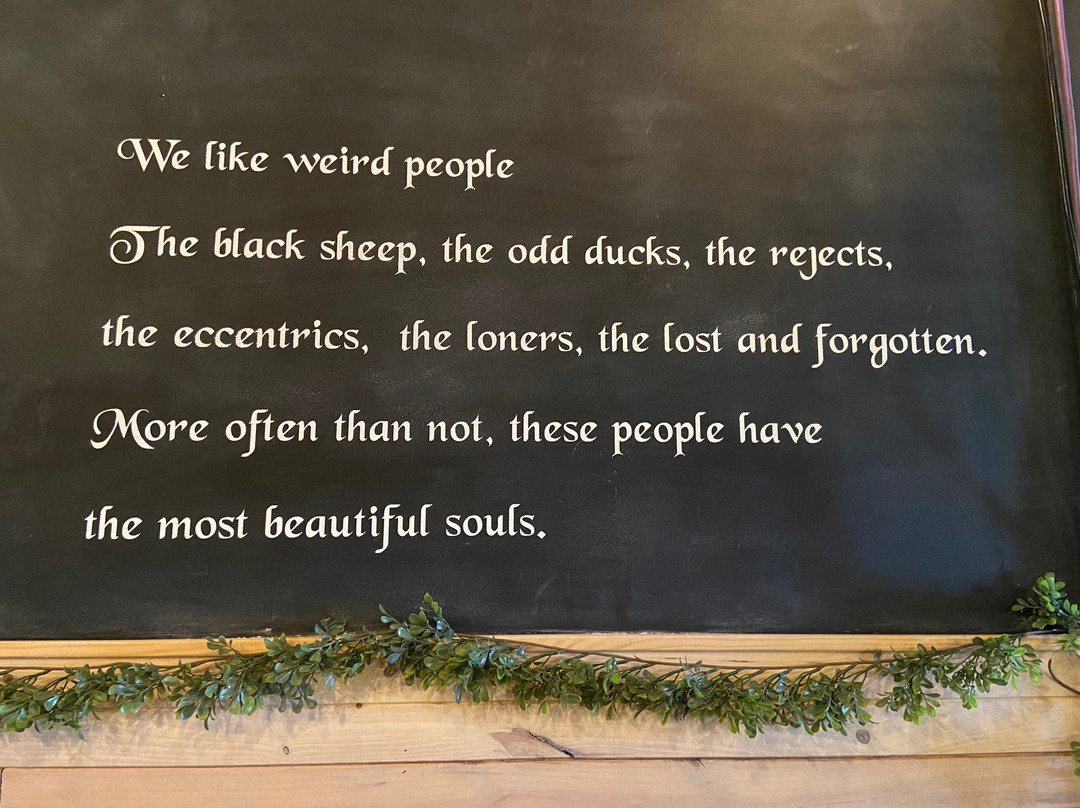 We like weird people
The black sheep, the odd ducks, the rejects,
the eccentrics, the loners, the lost and forgotten.
More often than not, these people have
the most beautiful souls.